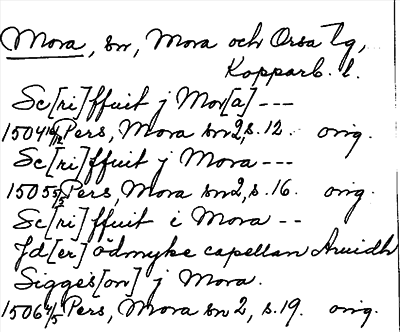 Mora, sn, Mora och Orsa tg,
Kopparb. l.
Sc[ri]ffuit j Mor[a] ---
1504 16/12 Pers, Mora sn 2, s. 12. orig.
Sc[ri]ffuit j Mora ---
1505 5/5 Pers, Mora sn 2, s. 16. orig.
Sc[ri]ffuit i Mora --
Jd[er] ödmyke capellan Aruidh
Sigges[on] j Mora.
1506 4/5 Pers, Mora sn 2, s. 19. orig.